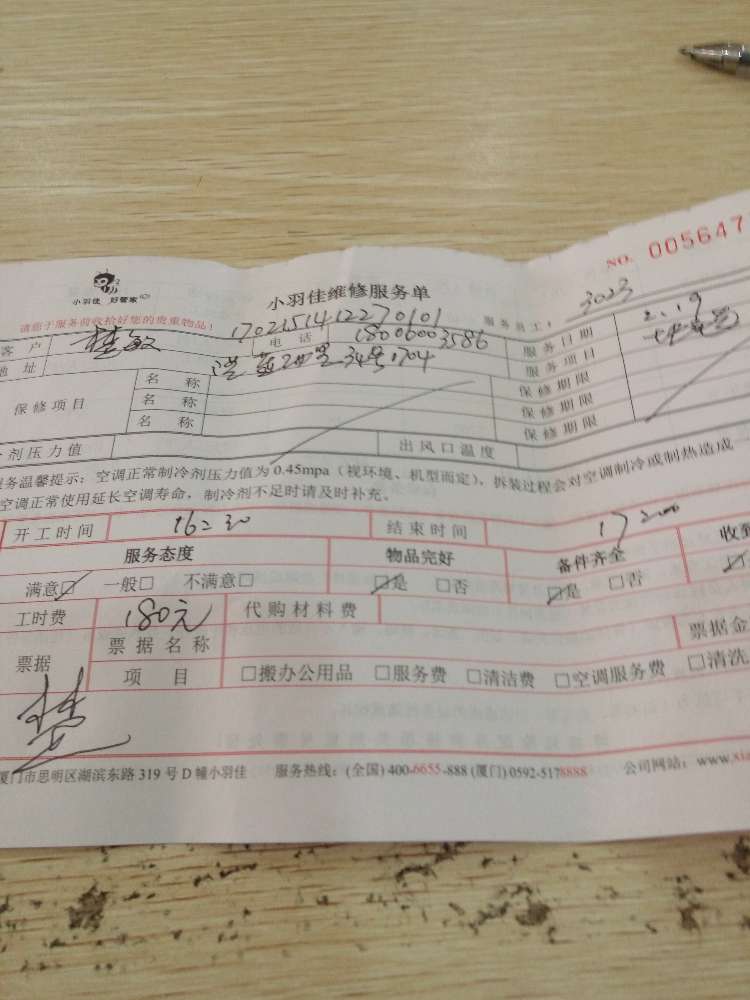 NO. 005647
小羽佳 好管家
小羽佳维修服务单
请您于服务前收拾好您的贵重物品!
170215141227 0101
服务员工: 3023
客户 楚敏 电话 18006003586 服务日期 2.19
地址 34号1704 服务项目
保修项目 名称 保修期限
名称 保修期限
名称 保修期限
剂压力值 出风口温度
务温馨提示:空调正常制冷剂压力值为0.45mpa(视环境、机型而定),拆装过程会对空调制冷或制热造成
空调正常使用延长空调寿命,制冷剂不足时请及时补充。
开工时间 16:30 结束时间 17:00
服务态度 物品完好 备件齐全 收到
满意☑ 一般□ 不满意□ ☑是 □否 ☑是 □否
工时费 180元 代购材料费
票据 票据名称 票据金
项目 □搬办公用品 □服务费 □清洁费 □空调服务费 □清洗
楚
厦门市思明区湖滨东路 319 号 D 幢小羽佳 服务热线:(全国) 400-6655-888 (厦门) 0592-5178888 公司网站:www.xia